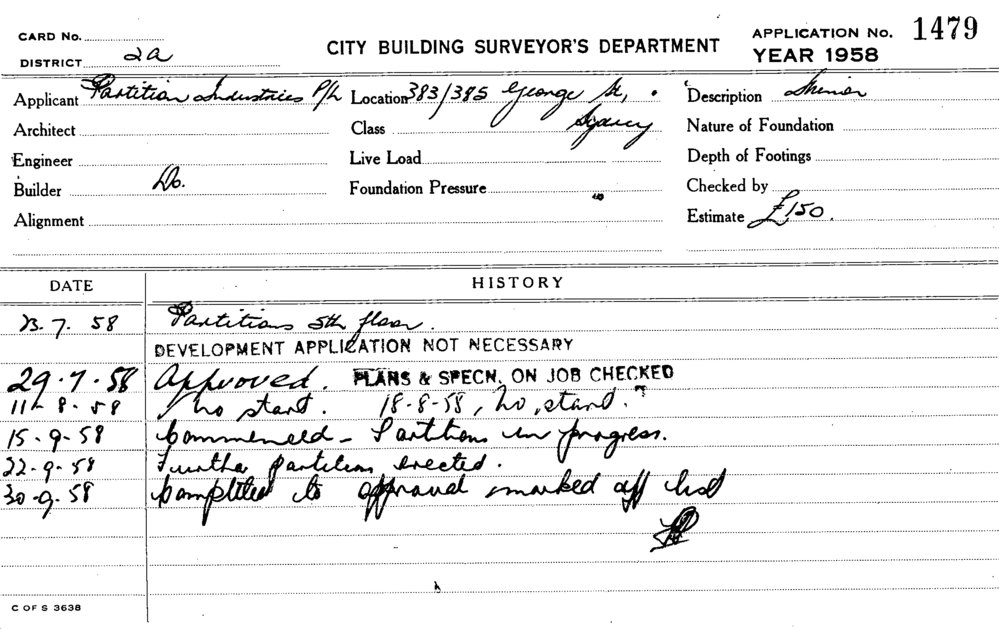 CARD No.
DISTRICT 2a
CITY BUILDING SURVEYOR'S DEPARTMENT
APPLICATION No. 1479
YEAR 1958
Applicant Partition Industries P/L Location 383/385 George St,
Sydney
Description Minor
Architect
Class
Nature of Foundation
Engineer
Live Load
Depth of Footings
Builder Do.
Foundation Pressure
Checked by
Alignment
Estimate £150.
DATE HISTORY
23. 7. 58 Partitions 5th floor.
DEVELOPMENT APPLICATION NOT NECESSARY
29.7.58 Approved. PLANS & SPECN. ON JOB CHECKED
11-8.58 no start. 18-8-58, no start.
15-9-58 Commenced - Partitions in progress.
22-9-58 Further partitions erected.
30-9.58 Completed to approval marked off list
C OF S 3638